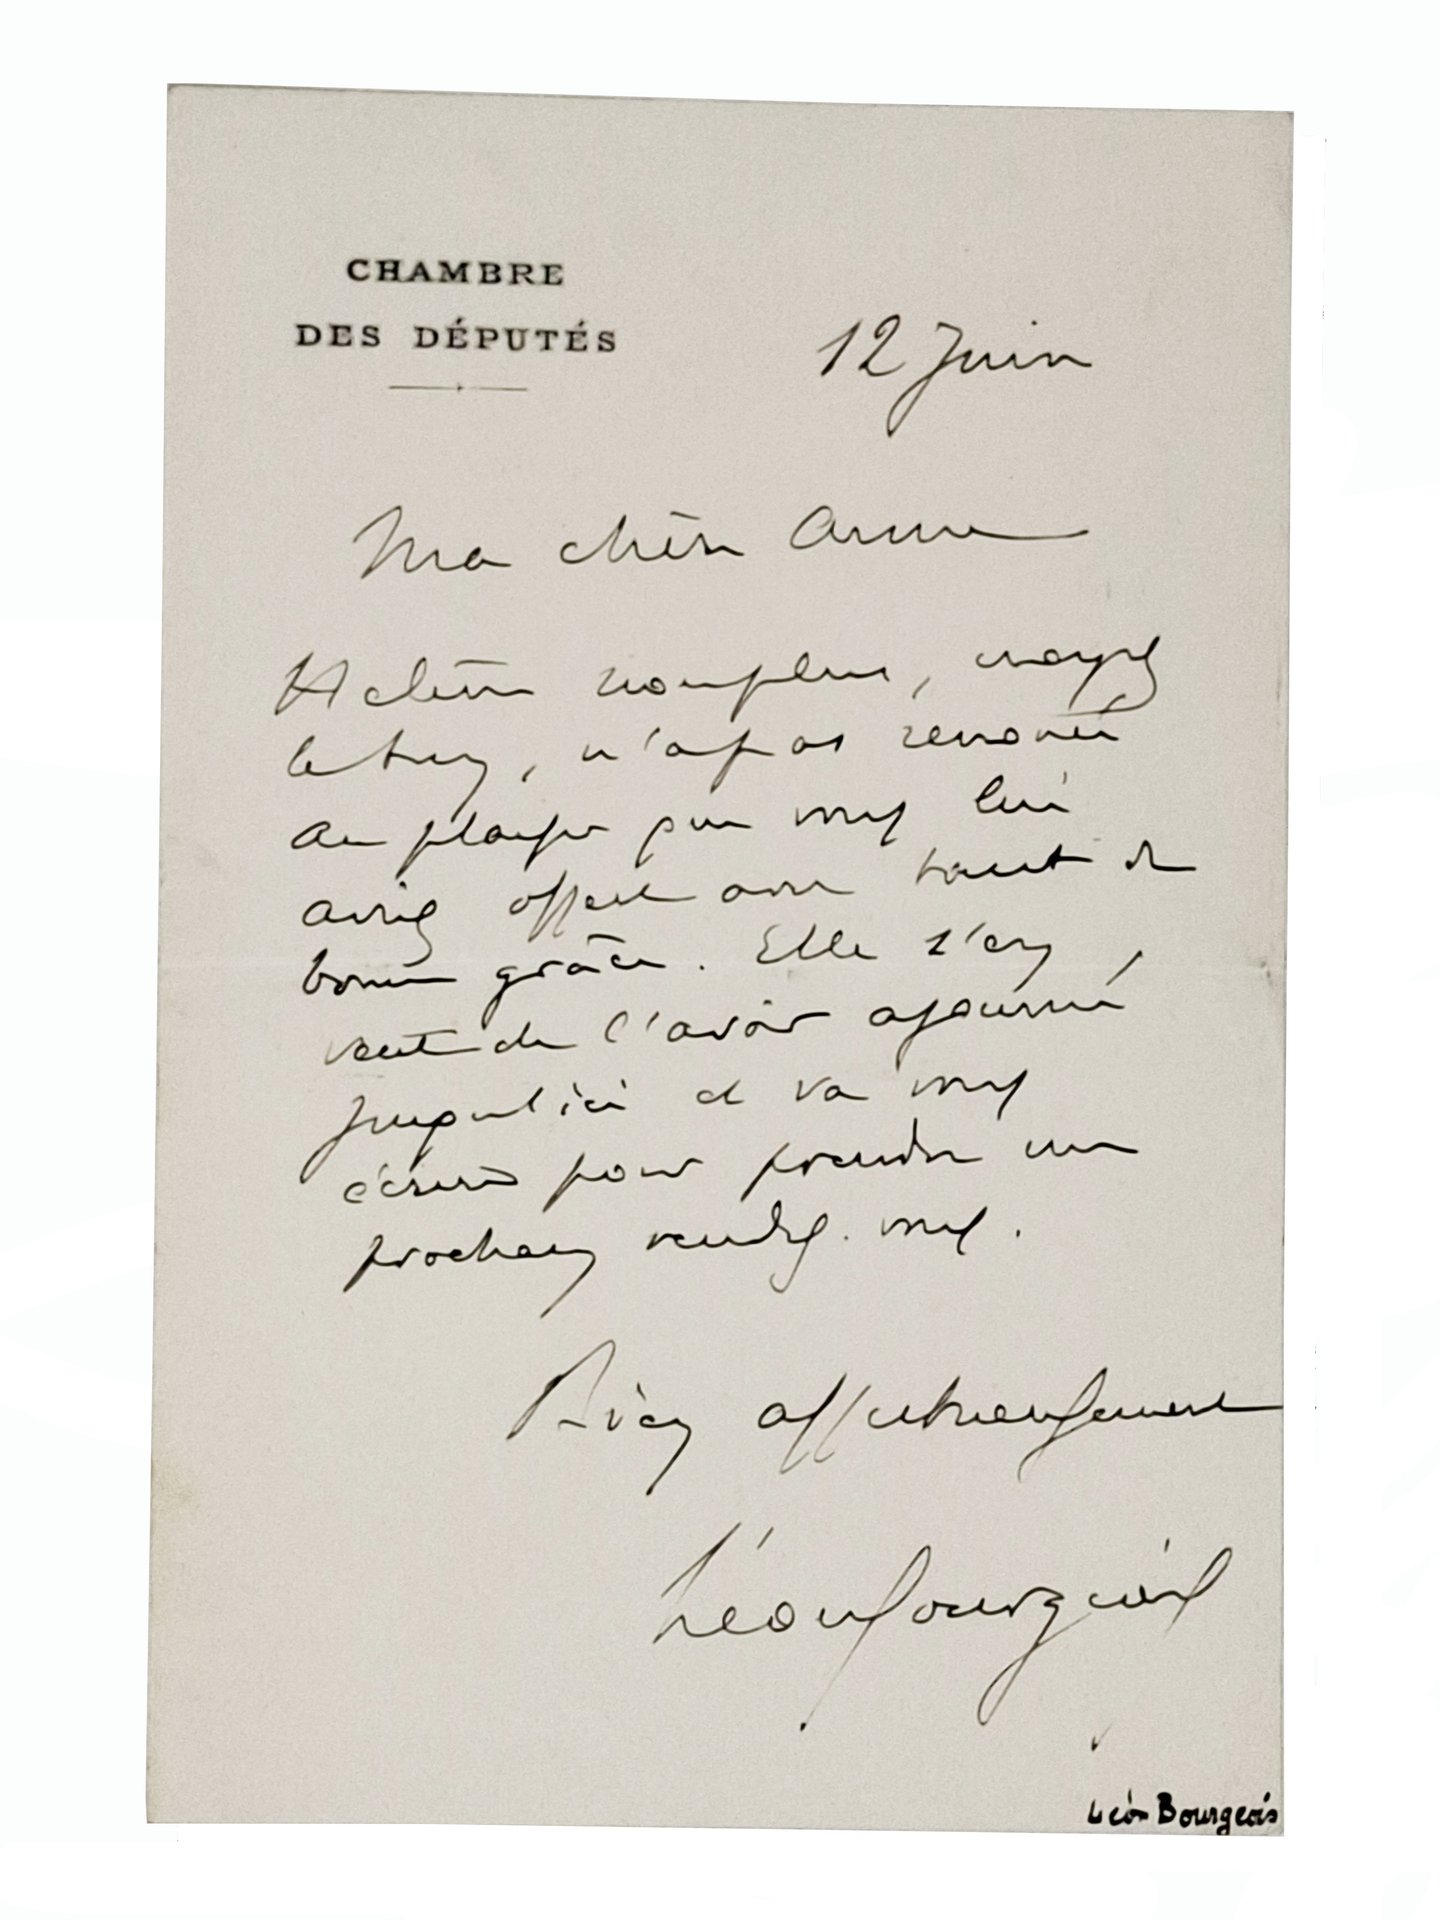 CHAMBRE
DES DÉPUTÉS
12 Juin
Ma chère Amie
Hélène non plus, croyez
le bien, n'a pas renoncé
au plaisir que vous lui
aviez offert avec tant de
bonne grâce. Elle s'en
veut de l'avoir ajourné
jusqu'ici et va vous
écrire pour prendre un
prochain rendez-vous.
Bien affectueusement
Léon Bourgeois
Léon Bourgeois